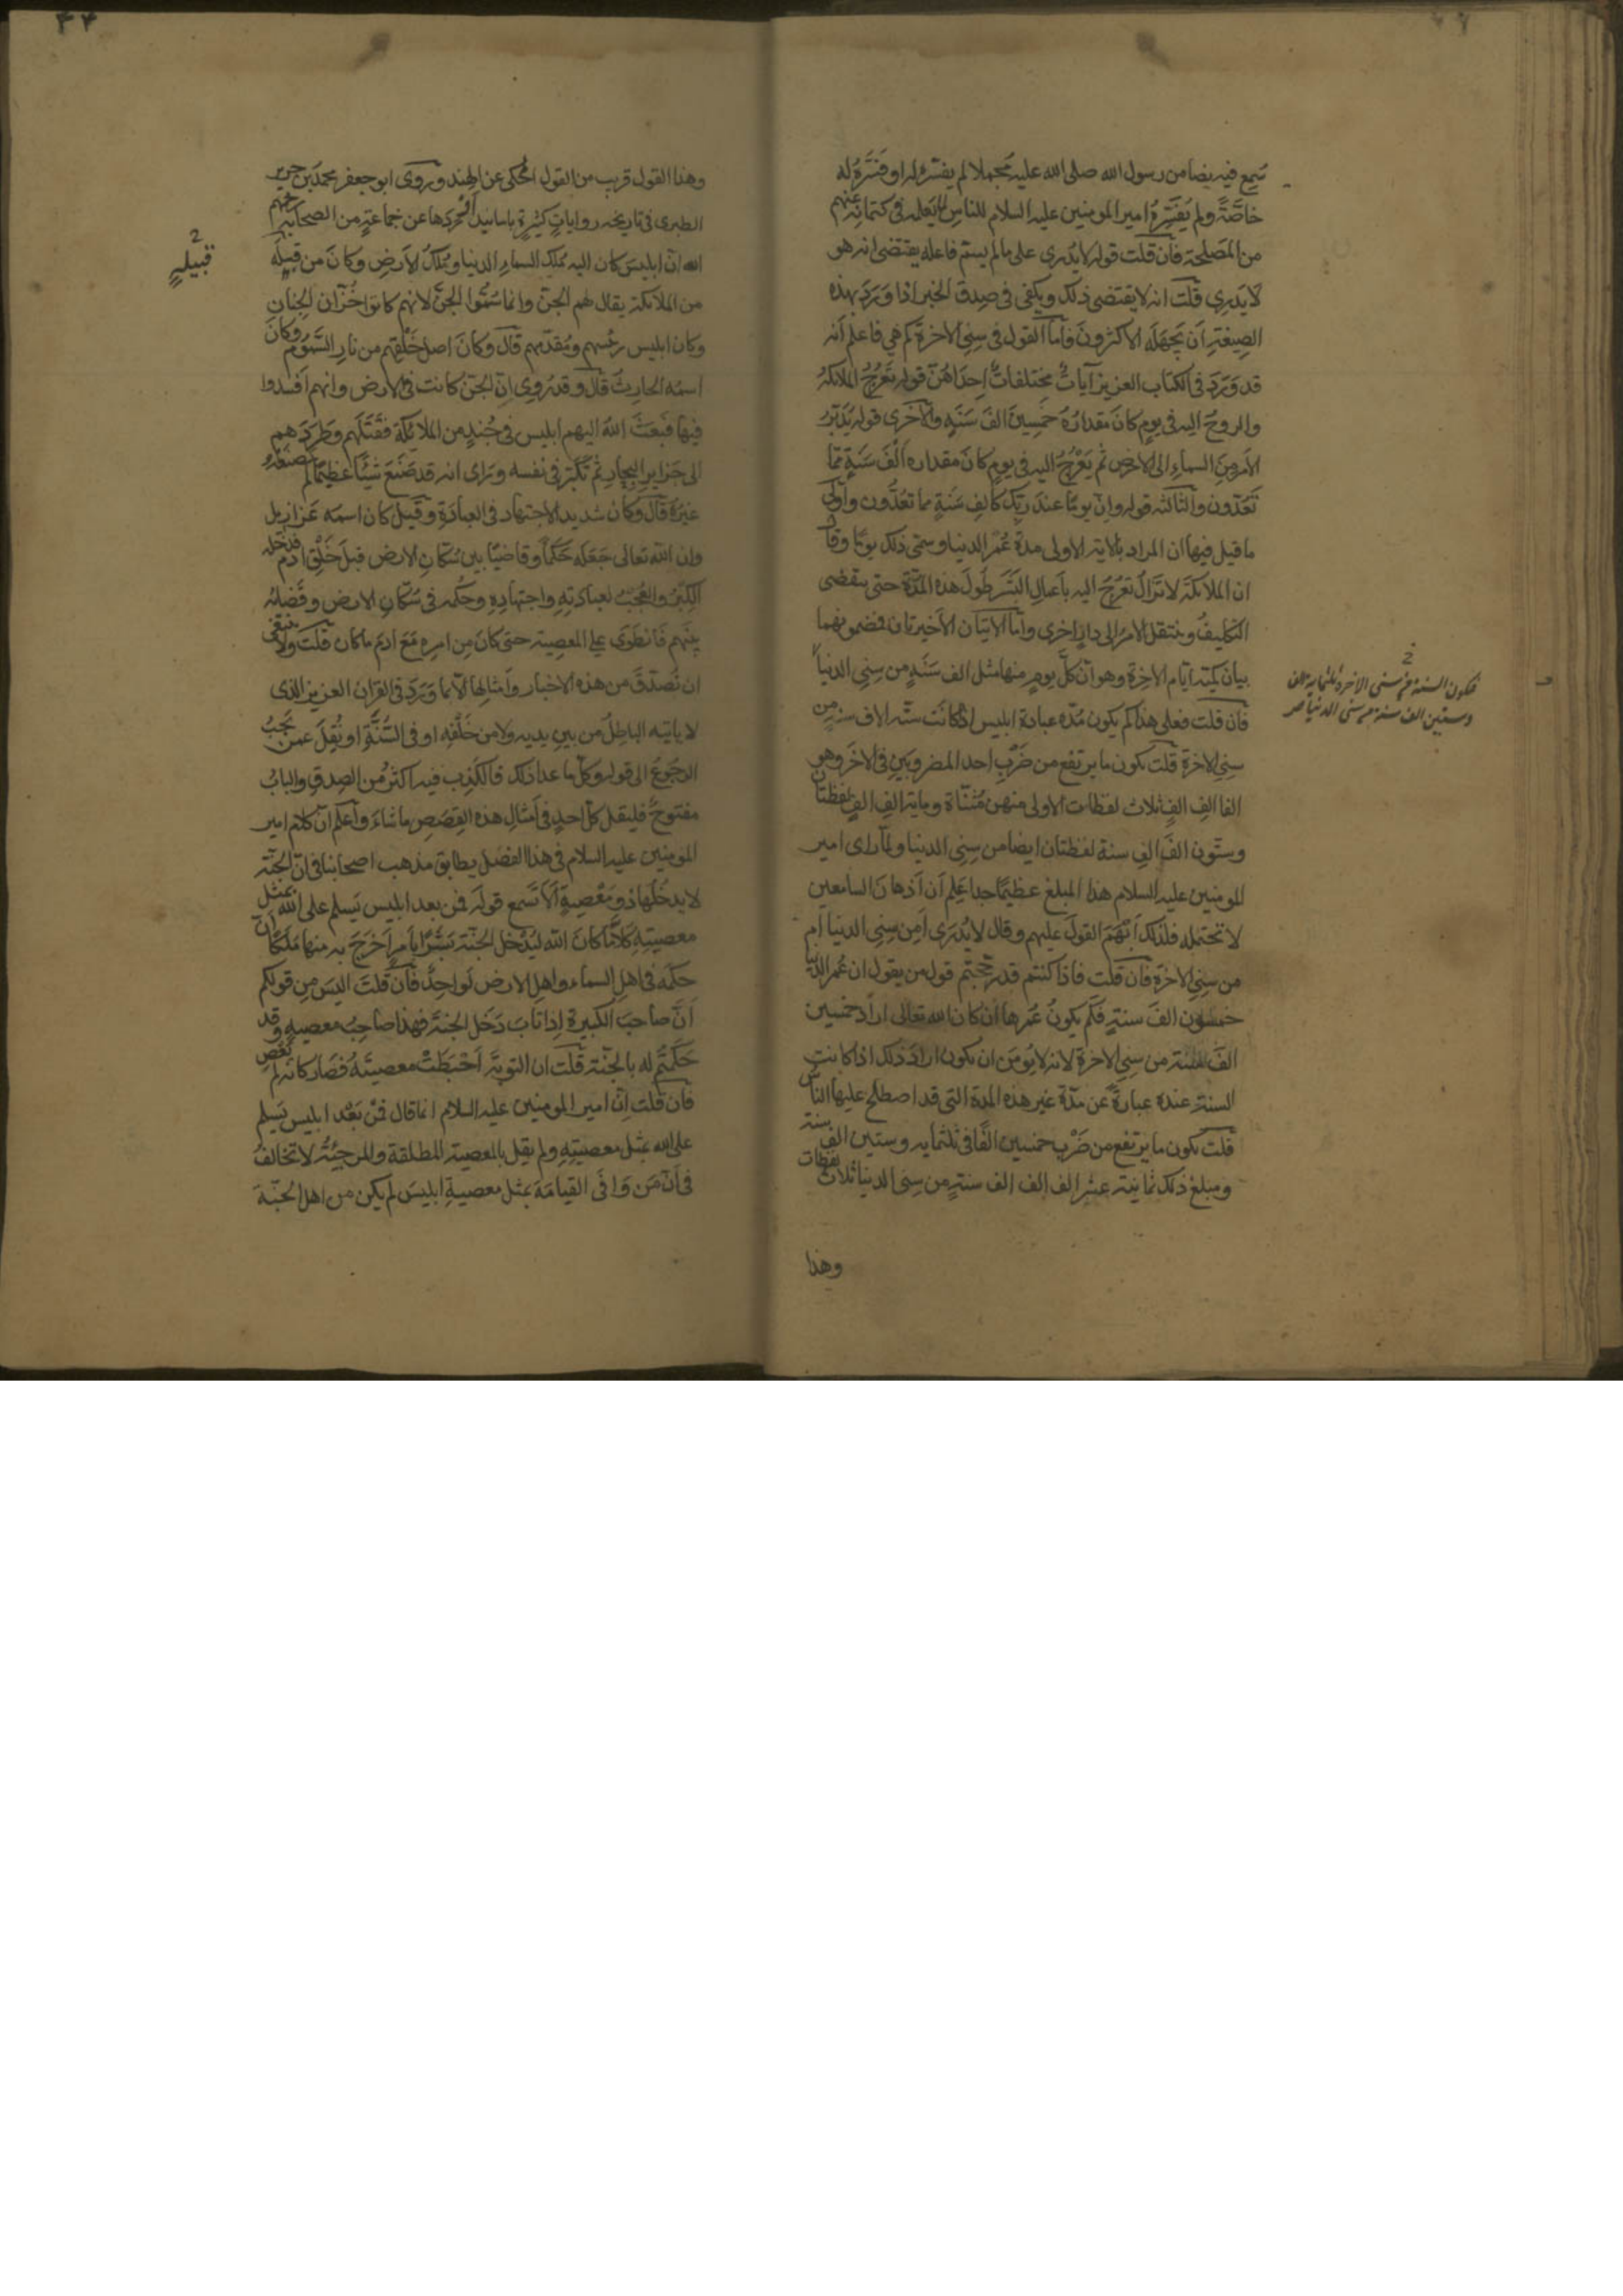 سَمِع فيه نصا من رسول الله صلى الله عليه مجملا لم يفسّره له او فسَّرَهُ له
خاصَّةً ولم يُفَسِّرهُ امير المومنين عليه السلام للناسِ لما يَعلمه فى كتمانِه عنهم
من المَصلحة فان قلت قوله لا يُدرى على ما لم يسمّ فاعله يقتضى انه هو
لا يَدرِى قلت انه لا يقتضى ذلك ويكفى فى صِدقِ الخبر اذا وَرَدَ بهذه
الصِيغةِ اَن يَجهَلَه الاكثرونَ فاما القول فى سِنِى الاخرة كم هى فاعلم اَنه
قد وَرَدَ فى الكتاب العزيز آياتٌ مختلفاتٌ اِحدَاهُنّ قوله تَعْرُجُ الملائكةُ
والروحُ اليه فى يومٍ كانَ مقدارُهُ خمسينَ الفَ سَنَةٍ والاُخرى قوله يُدَبِّرُ
الاَمرَ مِنَ السماءِ الى الارضِ ثم يَعْرُجُ اليه فى يومٍ كانَ مقداره اَلْفَ سَنَةٍ ممّا
تَعُدّون والثالثه قوله وانّ يومًا عندَ ربِّكَ كالفِ سَنةٍ مما تعُدُّون واَولى
ما قيل فيها ان المراد بالاية الاولى مدة عُمُرِ الدنيا وسمّى ذلك يومًا وقال
ان الملائكة لا تزالُ تعرُجُ اليه باَعمالِ البَشَرِ طُولَ هذه المُدّة حتى ينقضى
التكليفُ وينتقل الامرُ الى دارٍ اخرى واَما الايتان الاَخيرتان فمضمونهما
بيان كمية ايّام الاخِرة وهو اَن كلَّ يومٍ منها مثل الف سَنَةٍ من سِنِى الدنيا
فتكون السنة من سنى الاخرة ثلثماية الف
وستين الف سنة من سنى الدنيا صح
فان قلت فعلى هذا كم يكون مُدّة عبادة ابليس اذا كانت ستّه الاف سنةٍ من
سِنِى الاخرة قلت يكون ما يرتفع من ضَرْبِ احد المضروبَينِ فى الاخر وهو
الفا الفِ الفٍ ثلاث لفظات الاولى منهن مُثنّاة وماية الفِ الفٍ لفظتان
وستّون الفَ الفِ سنة لفظتان ايضا من سِنِى الدنيا ولمّا راى امير
المومنين عليه السلام هذا المبلغ عظيمًا جدا عَلِم اَن اَذهانَ السامعين
لا تحتمله فلذلك اَبْهَمَ القولَ عليهم وقال لا يُدرَى اَمِن سِنِى الدنيا ام
من سِنِى الاخرة فان قلت فاذا كنتم قد رَجّحتم قول من يقول ان عُمر الدنيا
خمسون الفَ سنةٍ فكَم يكونُ عُمرها اِن كان الله تعالى ارادَ خمسين
الفَ سنة من سِنِى الاخرة لانه لا يُومَن ان يكون ارادَ ذلك اذا كانت
السنة عنده عبارةً عن مدّة غير هذه المدة التى قد اصطلح عليها الناسُ
قلت يكون ما يرتفع من ضَرْبِ خمسين الفًا فى ثلثمايه وستين الف سنة
ومبلغ ذلك ثمانية عشر الف الف الف سنةٍ من سِنِى الدنيا ثلاث لفظات
وهذا
٤٣
وهذا القول قريب من القول المحكى عن الهند وروى ابو جعفر محمد بن جرير
الطبرى فى تاريخه رواياتٍ كثيرةٍ باسانيدَ اَوْرَدَها عن جماعةٍ من الصحابة رضى
الله انّ ابليسَ كان اليه مُلك السماءِ الدنيا ومُلكُ الاَرضِ وكانَ من قبيلَةٍ
قبيلهٍ
من الملائكة يقال لهم الجنّ وانما سُمُّوا الجنّ لانهم كانوا خُزّان الجنان
وكان ابليس رئيسهم ومُقدّمهم قال وكانَ اصل خَلْقِهم من نارِ السَّمُوم وكانَ
اسمه الحارث قال وقد رُوى اِنّ الجنَّ كانت فى الارض وانهم اَفسَدوا
فيها فبَعَثَ اللهُ اليهم ابليس فى جُندٍ من الملائكة فقَتَلهم وطَرَدَ هم
الى جزايرِ البِحارِ ثم تكَبَّر فى نفسه وراى انه قد صَنَعَ شيئًا عظيمًا لم يصنعه
غيرُهُ قال وكان شديد الاجتهاد فى العبادَةِ وقيل كان اسمُه عَزازيل
وان الله تعالى جَعَلَه حَكَماً وقاضيًا بين سُكّانِ الارض قبلَ خَلْقِ ادمَ فدَخَله
الكِبْر والعُجْبُ لعبادتِهِ واجتهادِهِ وحُكمِه فى سُكّان الارض وقَضائه
بينهم فانطَوَى على المعصية حتى كانَ مِن امرِه مَعَ ادمَ ما كان قلت ولا ينبغى
ان نُصَدّقَ من هذه الاخبار واَمثالِها اِلّا ما وَرَدَ فى القران العزيز الذى
لا ياتيه الباطلُ من بينِ يديه ولا من خَلْفِه او فى السُّنَّةِ او نُقِلَ عمن يَجِبُ
الرجوعُ الى قوله وكلّ ما عدا ذلك فالكذِبُ فيه اكثرُ مِن الصِدقِ والبابُ
مفتوحٌ فليقل كلّ احدٍ فى اَمثالِ هذه القِصَصِ ما شاءَ واعلم انّ كلام امير
المومنين عليه السلام فى هذا الفصل يطابق مذهب اصحابنا فى انّ الجنّة
لا يدخُلها ذو مَعْصِيةٍ اَلا تَسمع قولَه فمَن بعد ابليس يَسلم على الله بمثل
معصيتِهِ كلّا ما كانَ الله ليُدْخِلَ الجنّة بَشَرًا بامرٍ اَخرَجَ به منها مَلَكًا اِنّ
حكمَه فى اهلِ السماء واهلِ الارض لَواحِدٌ فان قلتَ اليسَ مِن قولكم
اَنّ صاحبَ الكبيرة اِذا تابَ دَخَل الجنة فهذا صاحِبُ معصيةٍ وقد
حَكَمتُم له بالجنّة قلت ان التوبةَ اَحْبَطَتْ معصيتَهُ فصَار كانّه لم يَعْصِ
فان قلت اِنّ امير المومنين عليه السلام انما قال فمَنْ بَعْد ابليس يَسلم
على الله بمثل معصيتِهِ ولم يقل بالمعصية المطلقة والمرجئةُ لا تخالفُ
فى اَنّ مَن وَافَى القيامَةَ بمثل معصيةِ ابليسَ لم يكن من اهل الجنّة